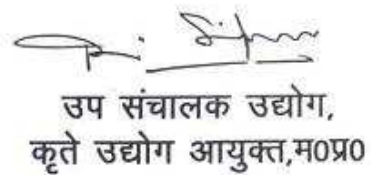 उप संचालक उद्योग,
कृते उद्योग आयुक्त,म0प्र0